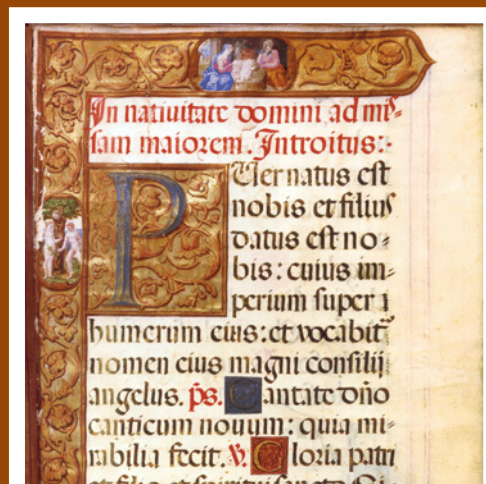 In natiuitate domini ad mis=
sam maiorem. Introitus:
PUer natus est
nobis et filius
datus est no=
bis: cuius im=
perium super
humerum eius: et vocabit̃
nomen eius magni consilij
angelus. p̃s. Cantate dño
canticum nouum: quia mi=
rabilia fecit. V. Gloria patri
et filio et spiritui sancto Si=